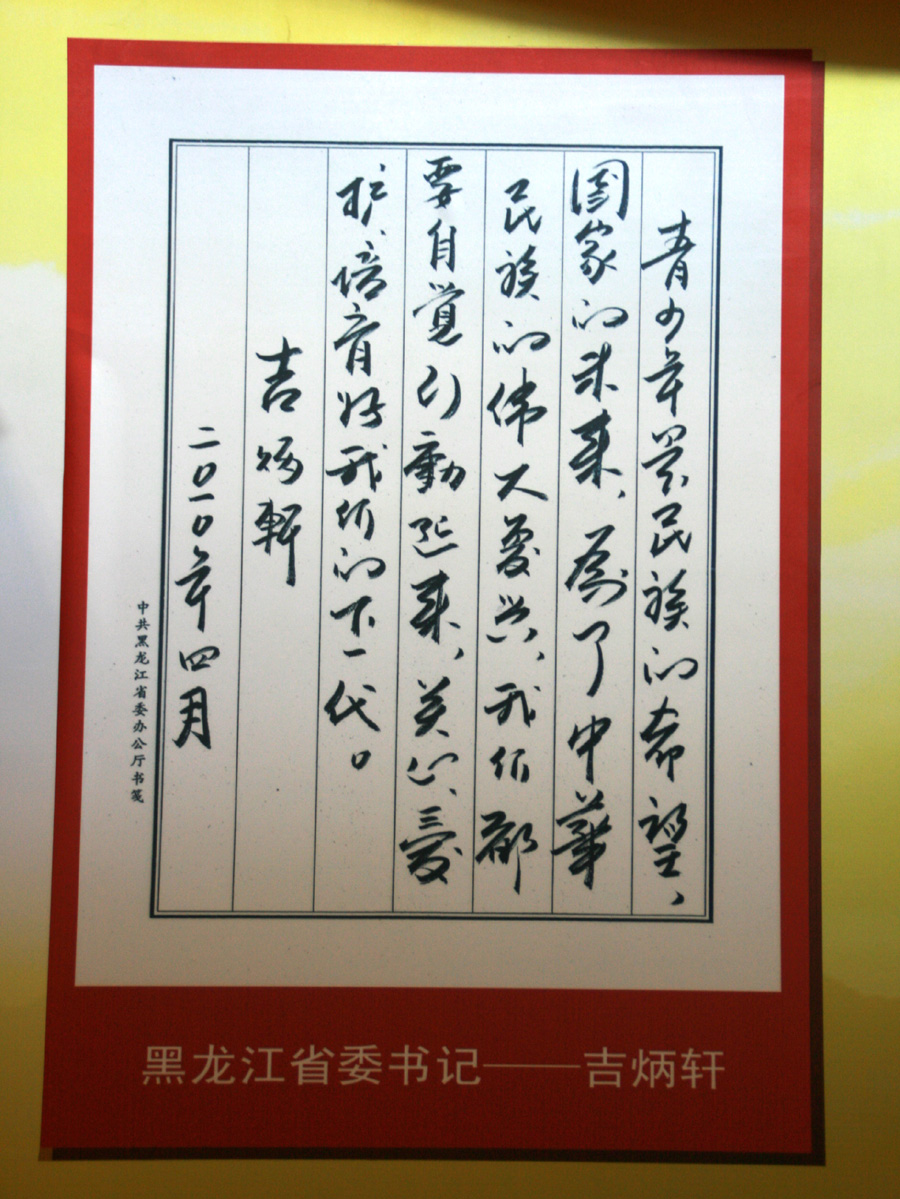 青少年是民族的希望、
国家的未来，为了中華
民族的伟大复兴，我们都
要自覚行動起来，关心、愛
护、培育好我们的下一代。
吉炳軒
二〇一〇年四月
中共黑龙江省委办公厅书笺
黑龙江省委书记——吉炳轩